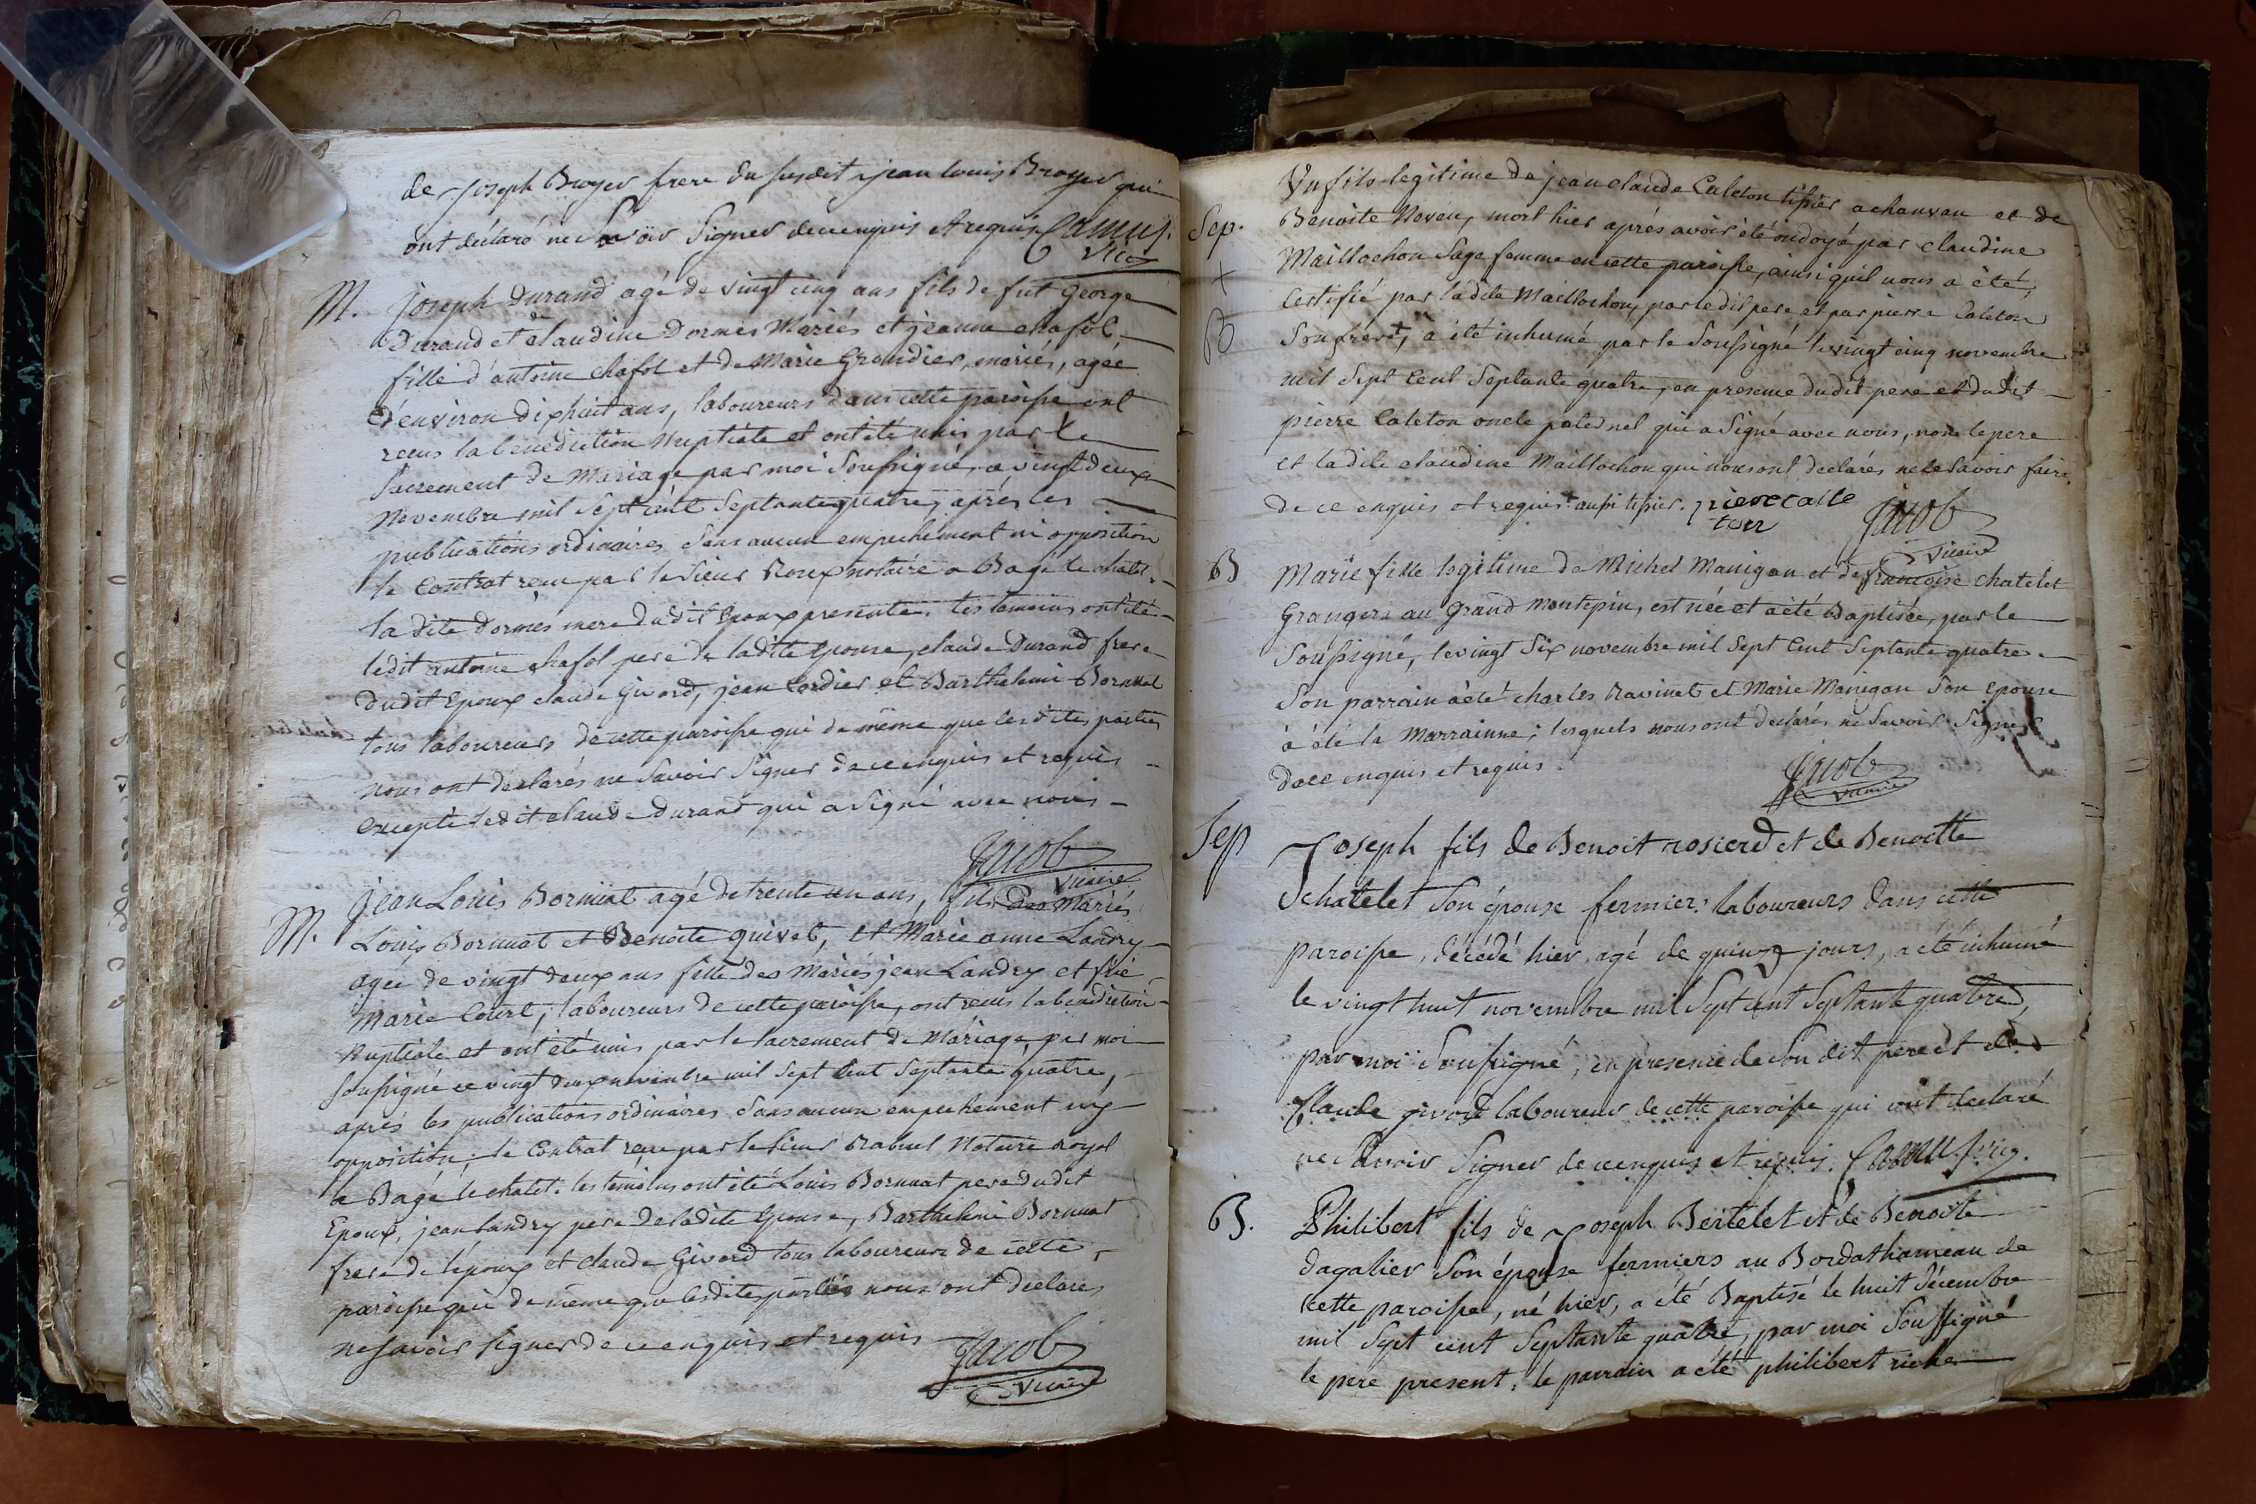 de Joseph Broyer frere du susdit jean louis Broyer qui
ont déclaré ne savoir signer de ce enquis et requis Camus.
Vic.
M. joseph Durand agé de vingt cinq ans fils de fut George
Durand et de claudine Dormes Mariés et jeanne chafol
fille d'antoine chafol et de Marie Grandier, mariés, agée
d'environ dixhuit ans, laboureurs dans cette paroisse ont
recus la benediction Nuptiale et ont été unis par le
Sacrement de Mariage par moi Soussigné, ce vingt deux
Novembre mil Sept cent Septante quatre, aprés les
publications ordinaires Sans aucun empechement ni opposition
le Contrat reçu par le Sieur Roux notaire a Bagé le chatel.
la dite Dormes mere dudit Epoux presente. les temoins ont été
ledit antoine chafol pere de ladite Epouse, claude Durand frere
dudit Epoux claude Givord, jean Cordier et Barthelemi Bornuat
tous laboureurs de cette paroisse qui de même que les dites parties
nous ont declarés ne Savoir Signer de ce enquis et requis
excepté ledit claude Durand qui a Signé avec nous
Jacob
Vicaire
M. Jean Louis Bornuat agé de trente un ans, fils des Mariés
Louis Bornuat et Benoite quivet, et Marie anne Landry
agée de vingt deux ans fille des Mariés jean Landry et
Marie Court, laboureurs de cette paroisse, ont recus la benediction
Nuptiale et ont été unis par le Sacrement de Mariage par moi
Soussigné ce vingt deux novembre mil Sept Cent Septante quatre,
aprés les publications ordinaires Sans aucun empechement ny
opposition; le Contrat reçu par le Sieur Rabuel Notaire royal
a Bagé le chatel. les temoins ont été Louis Bornuat pere dudit
Epoux, jean Landry pere de ladite Epouse, Barthelemi Bornuat
frere de l'époux et claude Givord tous laboureurs de cette
paroisse qui de même que lesdites parties nous ont declarés
ne savoir signer de ce enquis et requis
Jacob
Vicaire
Un fils legitime de jean claude Caleton tissier a chanvau et de
Sep. Benoite Neveu, mort hier aprés avoir été ondoyé par claudine
+ Maillochon Sage femme en cette paroisse, ainsi quil nous a été
Certifié par ladite Maillochon, par ledit pere et par pierre Caleton
B Son frere +, à été inhumé par le Soussigné le vingt cinq novembre
mil Sept Cent Septante quatre, en presence dudit pere et dudit
pierre Caleton oncle paternel qui a Signé avec nous, non le pere
et ladite claudine Maillochon qui nous ont declarés ne le Savoir faire
de ce enquis et requis + aussi tissier. pierre calle
ton
Jacob
Vicaire
B Marie fille legitime de Michel Manigan et de francoise chatelet
Grangers au Grand montepin, est née et a été Baptisée, par le
Soussigné, le vingt Six novembre mil Sept Cent Septante quatre.
Son parrain à été charles Ravinet et Marie Manigan Son Epouse
à été la Marrainne; lesquels nous ont declarés ne Savoir Signer
de ce enquis et requis.
Jacob
Vicaire
Sep Joseph fils de Benoit rosierd et de Benoitte
chatelet Son épouse fermiers laboureurs dans cette
paroisse, décédé hier, agé de quinze jours, a été inhumé
le vingt huit novembre mil Sept cent Septante quatre,
par moi Soussigné; en presence de Son dit pere et de
Claude givord laboureur de cette paroisse qui ont declaré
ne Savoir Signer de ce enquis et requis. Camus vicg.
B. Philibert fils de Joseph Bertelet et de Benoite
dagalier Son épouse fermiers au Bordat hameau de
cette paroisse, né hier, a été Baptisé le huit décembre
mil Sept cent Septante quatre, par moi Soussigné
le pere present; le parrain a été philibert riche